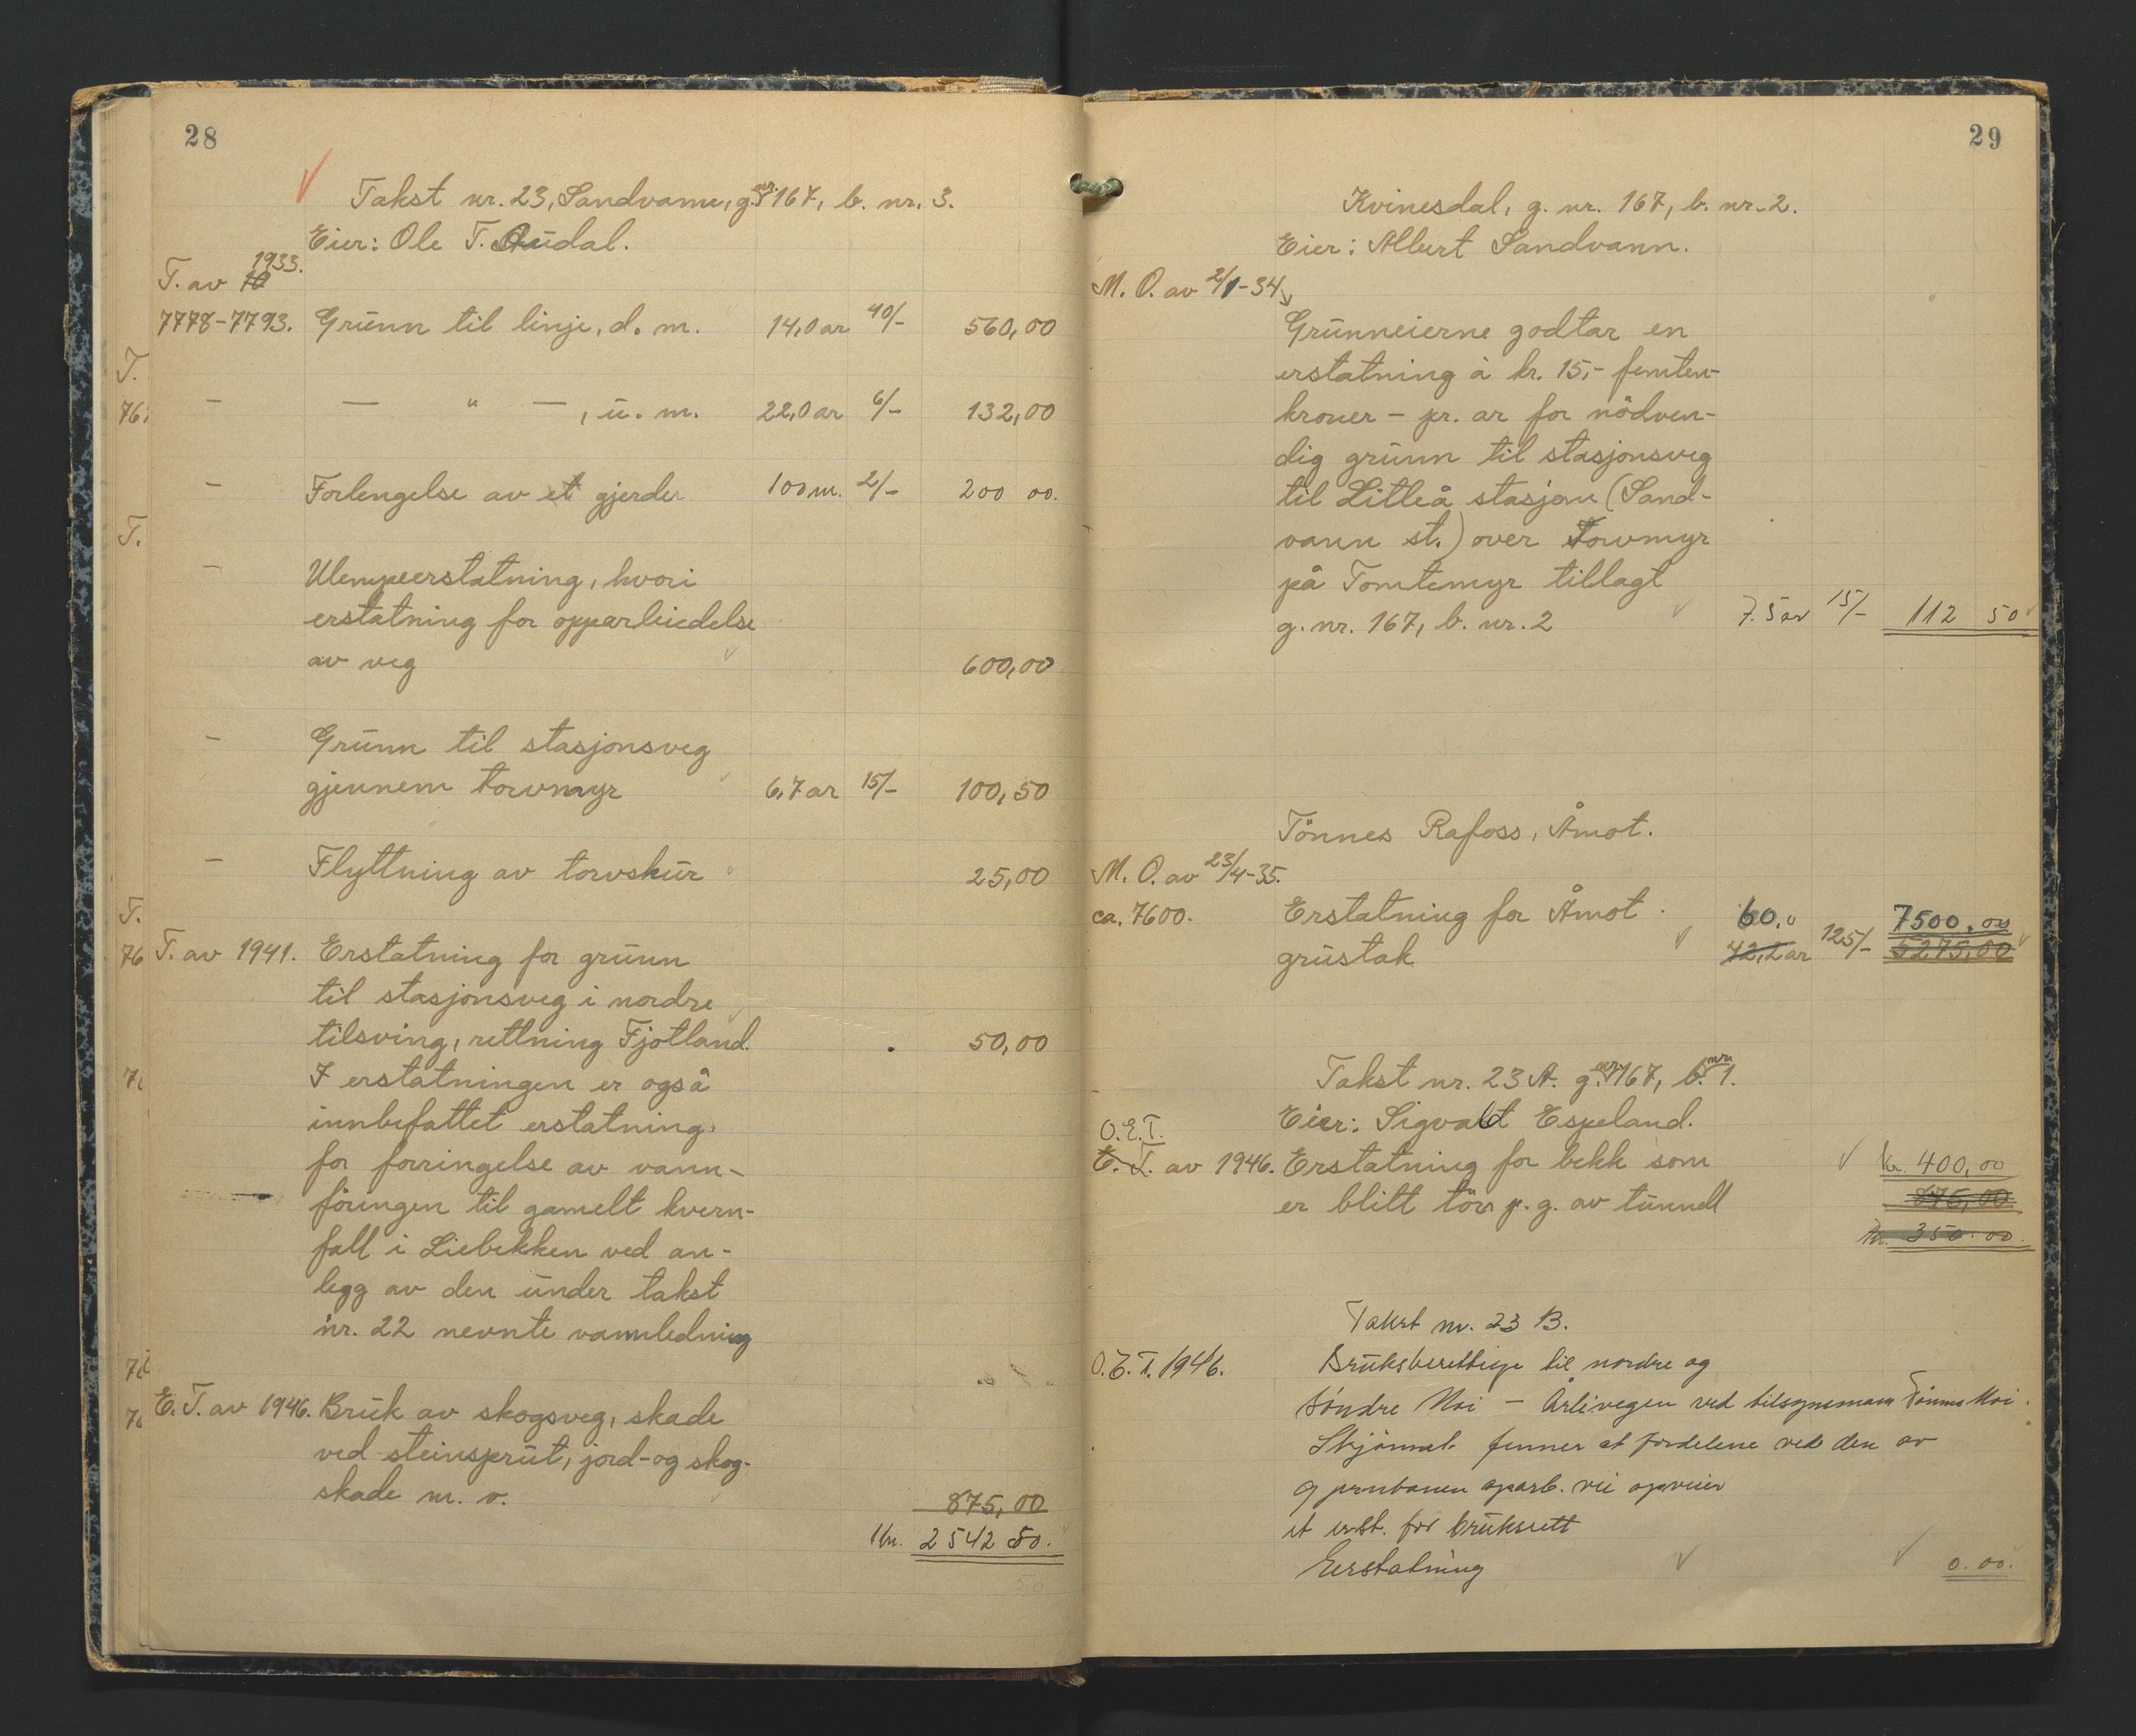 28
Takst nr. 23, Sandvann, g.nr. 167, b. nr. 3.
Eier: Ole T. Audal.
1933.
T. av 10
7778-7793. Grunn til linje, d. m. 14,0 ar 40/- 560,00
T.
76 - — " —, u. m. 22,0 ar 6/- 132,00
- Forlengelse av et gjerde 100 m. 2/- 200 00.
T.
- Ulempeerstatning, hvori
erstatning for opparbeidelse
av veg 600,00
- Grunn til stasjonsveg
gjennem torvmyr 6,7 ar 15/- 100,50
- Flyttning av torvskur 25,00
T.
76 T. av 1941. Erstatning for grunn
til stasjonsveg i nordre
tilsving, rettning Fjotland. 50,00
I erstatningen er også
innbefattet erstatning
for forringelse av vann-
föringen til gamelt kvern-
fall i Liebekken ved an-
legg av den under takst
nr. 22 nevnte vannledning
E. T. av 1946. Bruk av skogsveg, skade
ved steinsprut, jord- og skog-
skade m. v. 875,00
Kr. 2542 50.
50
29
Kvinesdal, g. nr. 167, b. nr. 2.
Eier: Albert Sandvann.
M. O. av 2/1-34
Grunneierne godtar en
erstatning à kr. 15,- femten-
kroner - pr. ar for nödven-
dig grunn til stasjonsveg
til Litleå stasjon (Sand-
vann st.) over Torvmyr
på Tomtemyr tillagt
g. nr. 167, b. nr. 2 7.5 ar 15/- 112 50
Tönnes Rafoss, Åmot.
M. O. av 23/4-35.
ca. 7600. Erstatning for Åmot 60,0 7500,00
grustak 42,2 ar 125/- 5275,00
Takst nr. 23 A. g.nr. 167, b.nr. 1.
Eier: Sigvald Espeland.
O.E.T.
E. T. av 1946. Erstatning for bekk som kr. 400,00
er blitt törr p. g. av tunnell 875,00
kr. 350.00.
Takst nr. 23 B.
O.E.T. 1946. Bruksberettige til nordre og
söndre Moi - Årlivegen ved tilsynsmann Tönnes Moi.
Skjönnet finner at fordelene ved den av
jernbanen oparb. vei opveier
et erst. for bruksrett
Erstatning 0.00.